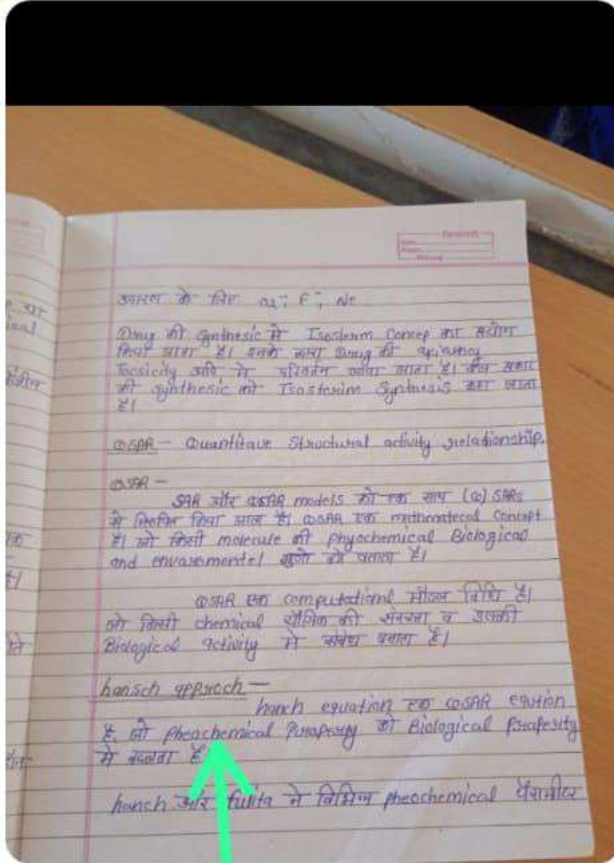 के लिए O2-, F-, Ne
Drug की Synthesic मे Isosterm Concep का
किया जाता है। इनके द्वारा Drug की
Tocsicity आदि मे परिवर्तन लाया जाता है। इस प्रकार
की synthesic को Isosterim Synthesis कहा जाता
है।
QSAR - Quantitave Structural activity relationship.
QSAR -
SAR और QSAR models को एक साथ (Q) SARs
मे किया जाता है। QSAR एक mathematecal Concept
है। जो किसी molecule की phyochemical Biological
and envaronmentel गुणो को बताता है।
QSAR एक computational मॉडल विधि है।
जो किसी chemical यौगिक की संरचना व उसकी
Biological activity मे संबंध बताता है।
hansch approch -
hanch equation एक QSAR eqution
है, जो pheochemical Puraperty को Biological Puraperity
मे बदलता है।
hanch और fujita ने विभिन्न pheochemical पैरामीटर